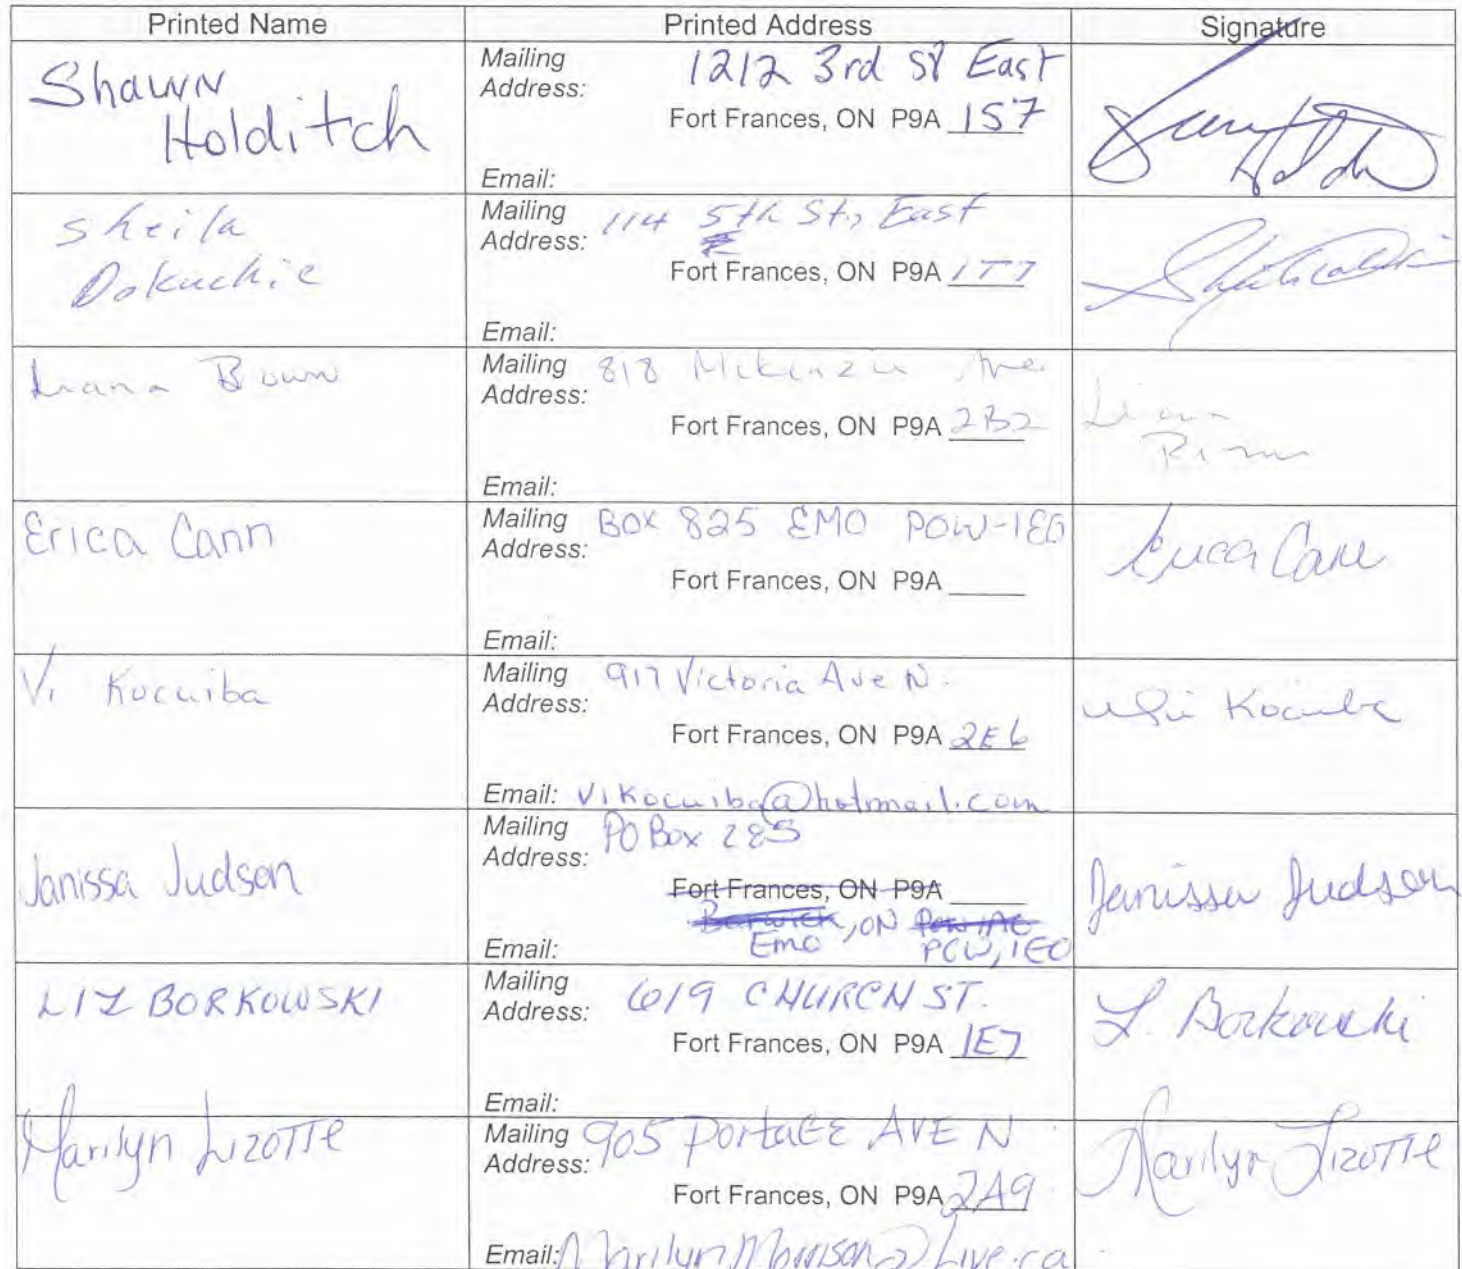 Printed Name Printed Address Signature
Shawn
Holditch
Mailing
Address: 1212 3rd St East
Fort Frances, ON P9A 1S7
Email:
Sheila
Dokuchie
Mailing
Address: 114 5th St, East
Fort Frances, ON P9A 1T7
Email:
Mailing
Address: 818 McKenzie Ave
Fort Frances, ON P9A 2B2
Email:
Erica Cann
Mailing
Address: BOX 825 EMO POW-1E0
Fort Frances, ON P9A
Email:
Erica Cann
Vi Kocuiba
Mailing
Address: 917 Victoria Ave N.
Fort Frances, ON P9A 2E6
Email: vikocuiba@hotmail.com
Kocuiba
Janissa Judson
Mailing
Address: PO Box 285
Fort Frances, ON P9A
Barwick, ON POW 1A0
Emo POW, 1E0
Email:
Janissa Judson
LIZ BORKOWSKI
Mailing
Address: 619 CHURCH ST.
Fort Frances, ON P9A 1E7
Email:
L. Borkowski
Marilyn Lizotte
Mailing
Address: 905 Portage AVE N
Fort Frances, ON P9A 2A9
Email: MarilynMorrison@Live.ca
Marilyn Lizotte